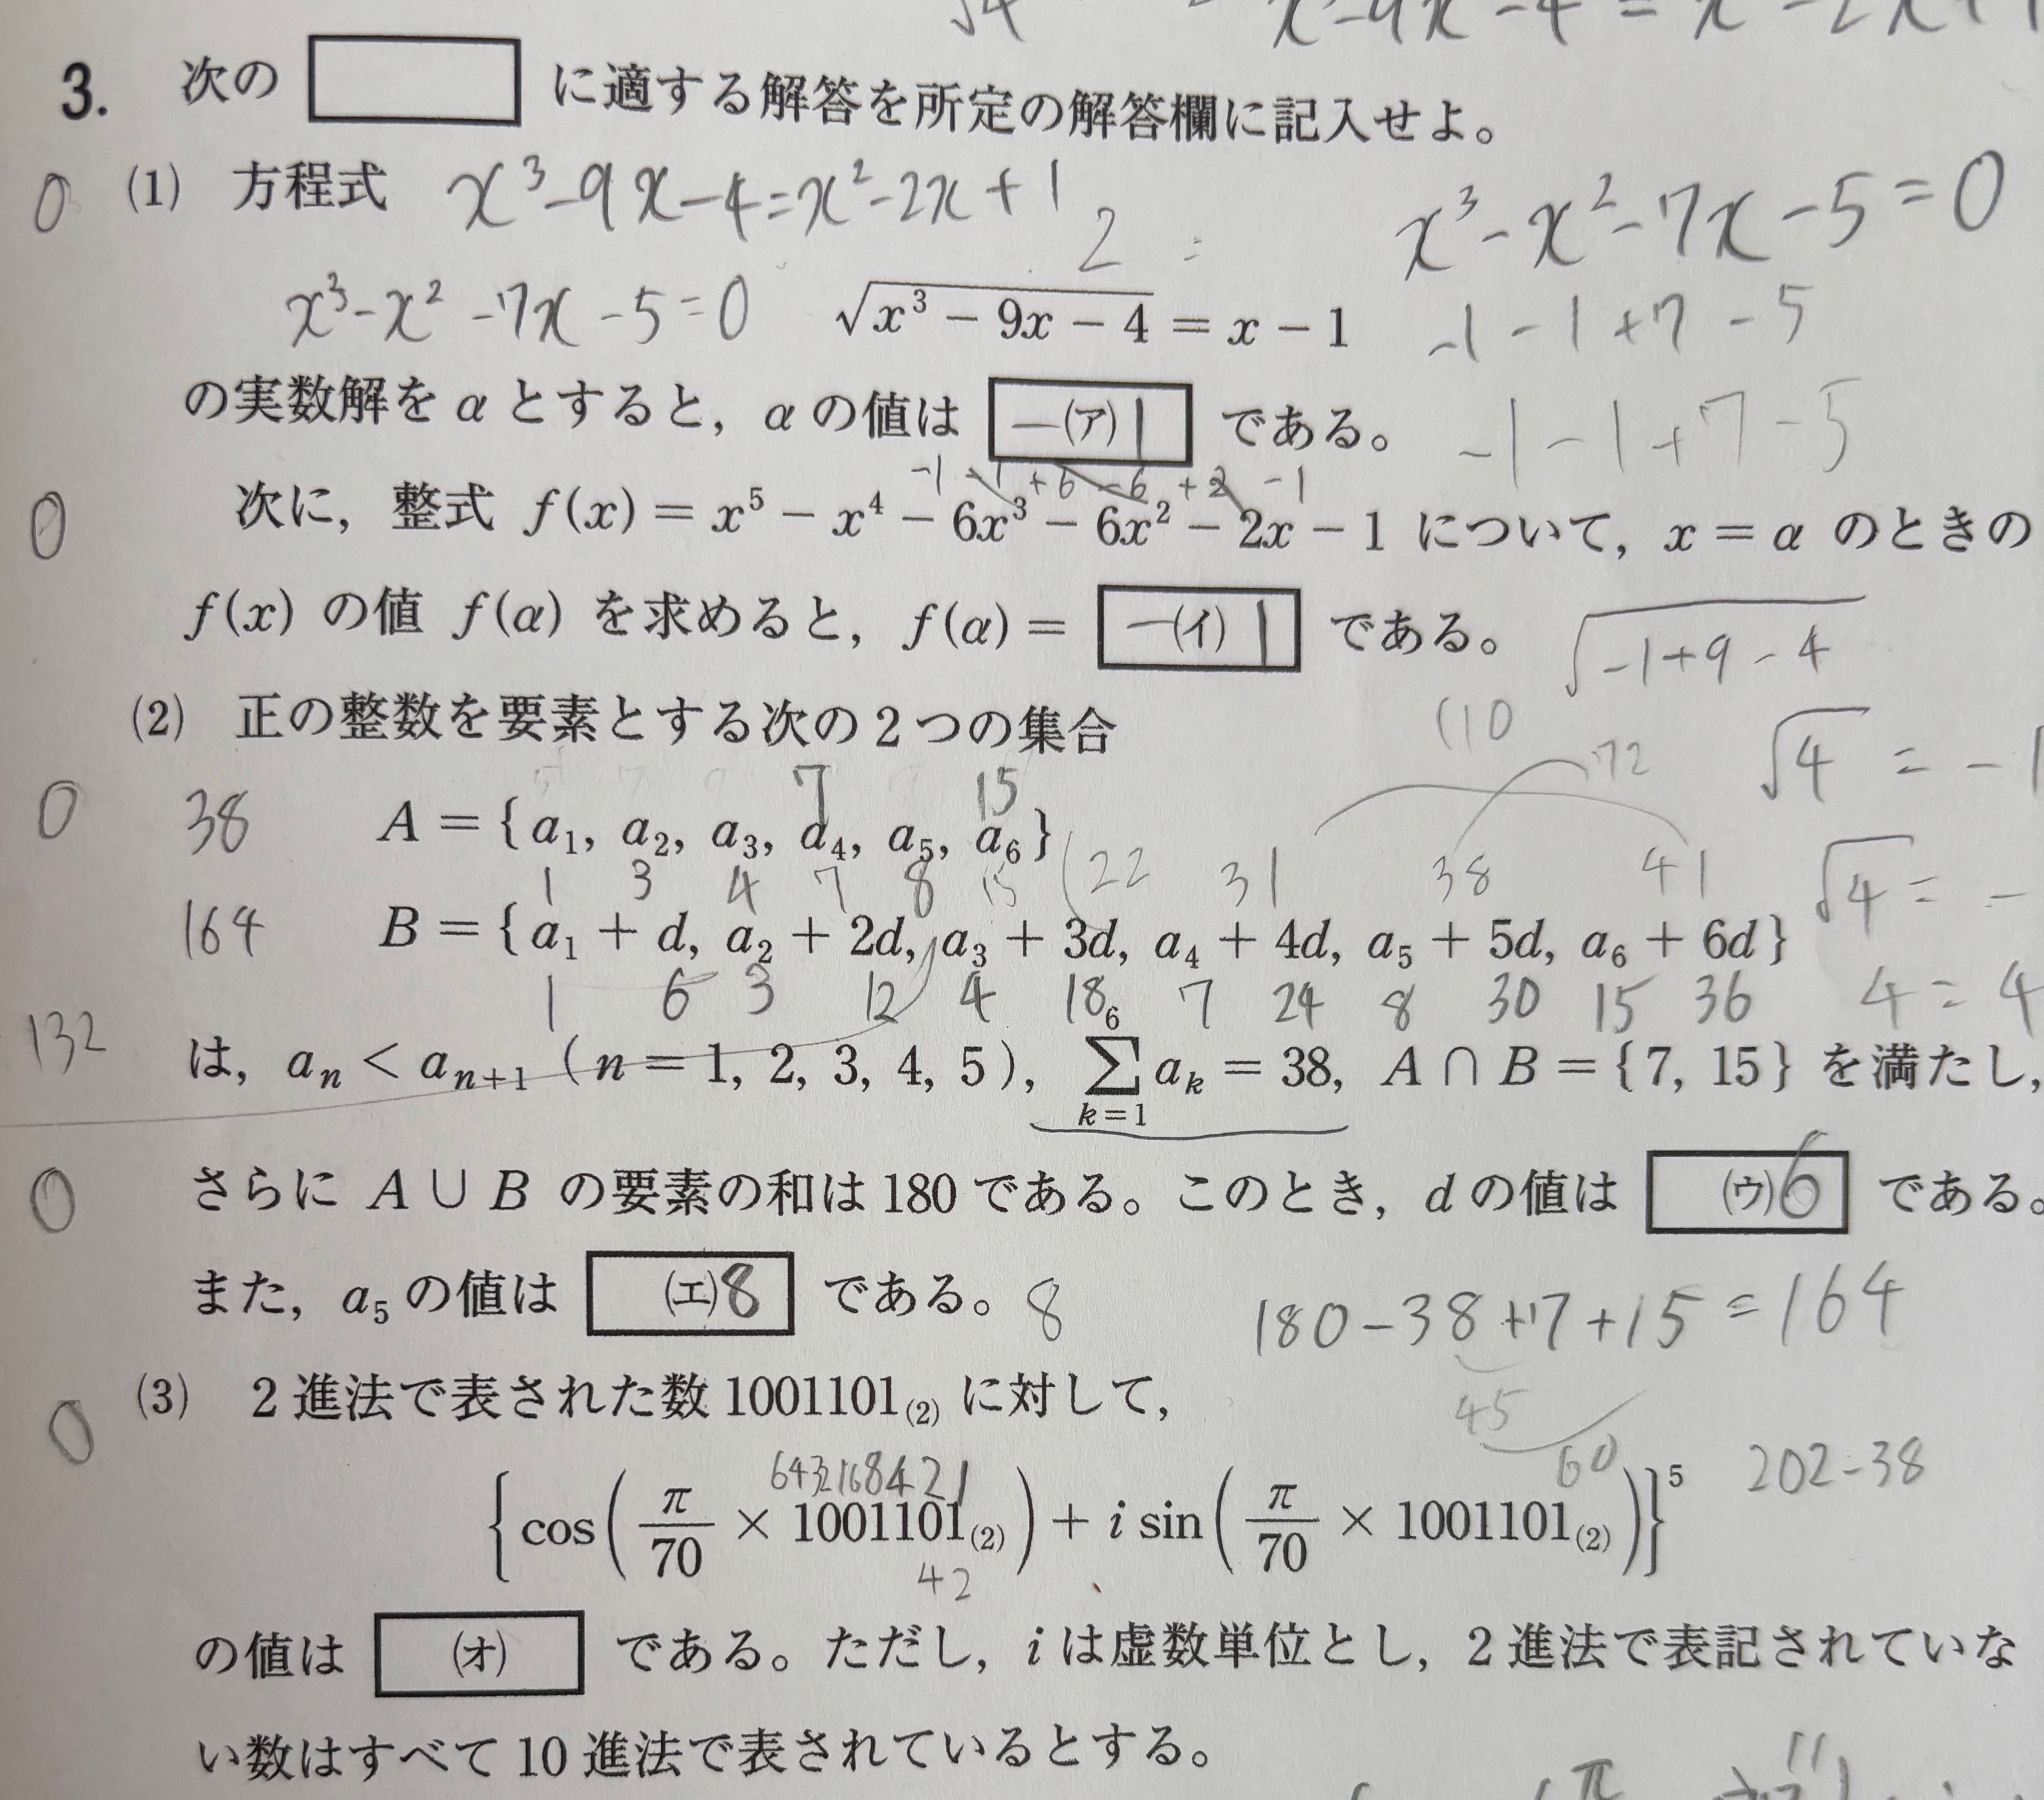 3. 次の に適する解答を所定の解答欄に記入せよ。
0 (1) 方程式 x³-9x-4=x²-2x+1 x³-x²-7x-5=0
2
x³-x²-7x-5=0 √(x³ − 9x − 4) = x − 1 -1-1+7-5
の実数解を α とすると, α の値は -(ア)1 である。 -1-1+7-5
-1-1+6-6+2-1
0 次に, 整式 f(x) = x⁵ − x⁴ − 6x³ − 6x² − 2x − 1 について, x = α のときの
f(x) の値 f(α) を求めると, f(α) = -(イ)1 である。 √(-1+9-4)
(2) 正の整数を要素とする次の 2 つの集合 (10
72 √4 = -1
7 15
0 38 A = { a₁, a₂, a₃, a₄, a₅, a₆ }
1 3 4 7 8 15 (22 31 38 41 √4 = -
164 B = { a₁ + d, a₂ + 2d, a₃ + 3d, a₄ + 4d, a₅ + 5d, a₆ + 6d }
1 6 3 12 4 18 7 24 8 30 15 36 4 = 4
132 は, aₙ < aₙ₊₁ ( n = 1, 2, 3, 4, 5 ), ∑_{k=1}^{6} aₖ = 38, A ∩ B = { 7, 15 } を満たし,
0 さらに A ∪ B の要素の和は 180 である。このとき, d の値は (ウ)6 である。
また, a₅ の値は (エ)8 である。 8 180-38+7+15=164
45
0 (3) 2 進法で表された数 1001101₍₂₎ に対して,
60 202-38
6432168421
{ cos( π/70 × 1001101₍₂₎ ) + i sin( π/70 × 1001101₍₂₎ ) }⁵
42
の値は (オ) である。ただし, i は虚数単位とし, 2 進法で表記されていな
い数はすべて 10 進法で表されているとする。